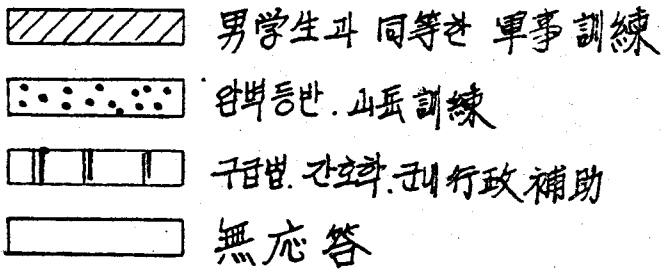 男学生과 同等한 軍事訓練
암벽등반. 山岳訓練
구급법. 간호학. 군대行政補助
無応答